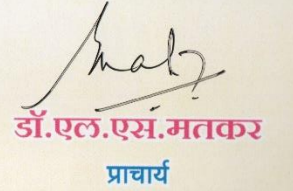 डॉ.एल.एस.मतकर
प्राचार्य